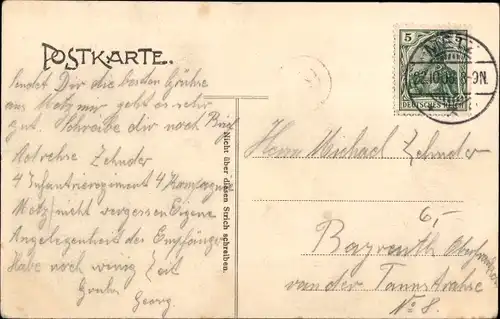 POSTKARTE.
sendet Dir die besten Grüße
aus Metz mir geht es sehr
gut. Schreibe dir noch Brief
Adresse Zehnder
4 Infantrieregiment 4 Kompagnie
Metz nicht vergessen Eigene
Angelegenheit des Empfänger
Habe noch winig Zeit
Gruhs
Georg.
Nicht über diesen Strich schreiben.
5
DEUTSCHES REICH
METZ
22.10. 8-9N.
Herrn Michael Zehnder
6,-
Bayreuth Oberfranken
van der Tannstrahse
No 8.